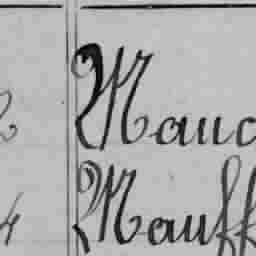 Mauc
4 Mauff